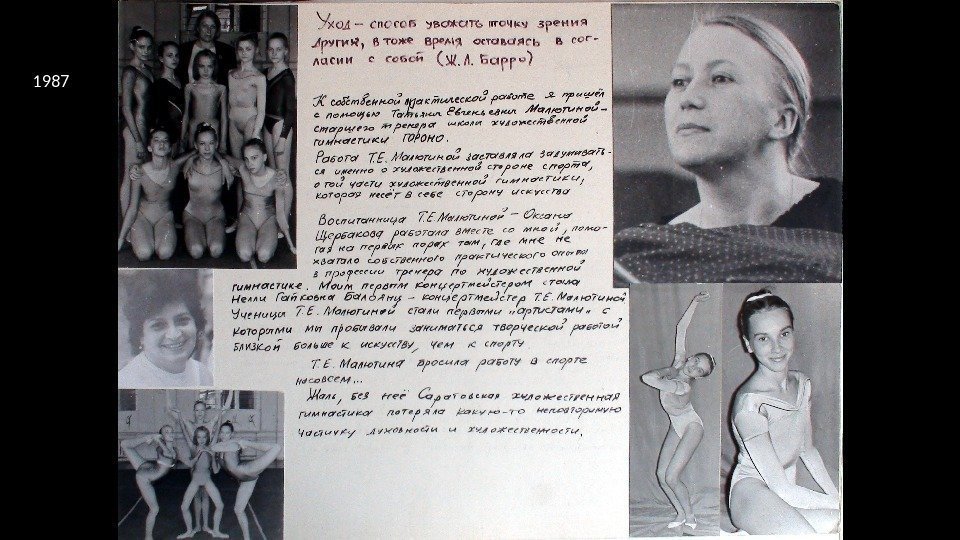 1987
Уход – способ уважать точку зрения
других, в тоже время оставаясь в сог-
ласии с собой (Ж.Л. Барро)
К собственной практической работе я пришёл
с помощью Татьяны Евгеньевны Малютиной –
старшего тренера школы художественной
гимнастики ГОРОНО.
Работа Т.Е. Малютиной заставляла задумывать-
ся именно о художественной стороне спорта,
о той части художественной гимнастики,
которая несёт в себе сторону искусства
Воспитанница Т.Е. Малютиной – Оксана
Щербакова работала вместе со мной, помо-
гая на первых порах там, где мне не
хватало собственного практического опыта
в профессии тренера по художественной
гимнастике. Моим первым концертмейстером стала
Нелли Гайковна Балоянц – концертмейстер Т.Е. Малютиной
Ученицы Т.Е. Малютиной стали первыми „артистами" с
которыми мы пробывали заниматься творческой работой
близкой больше к искусству, чем к спорту
Т.Е. Малютина бросила работу в спорте
насовсем...
Жаль, без неё Саратовская художественная
гимнастика потеряла какую-то неповторимую
частичку духовности и художественности.